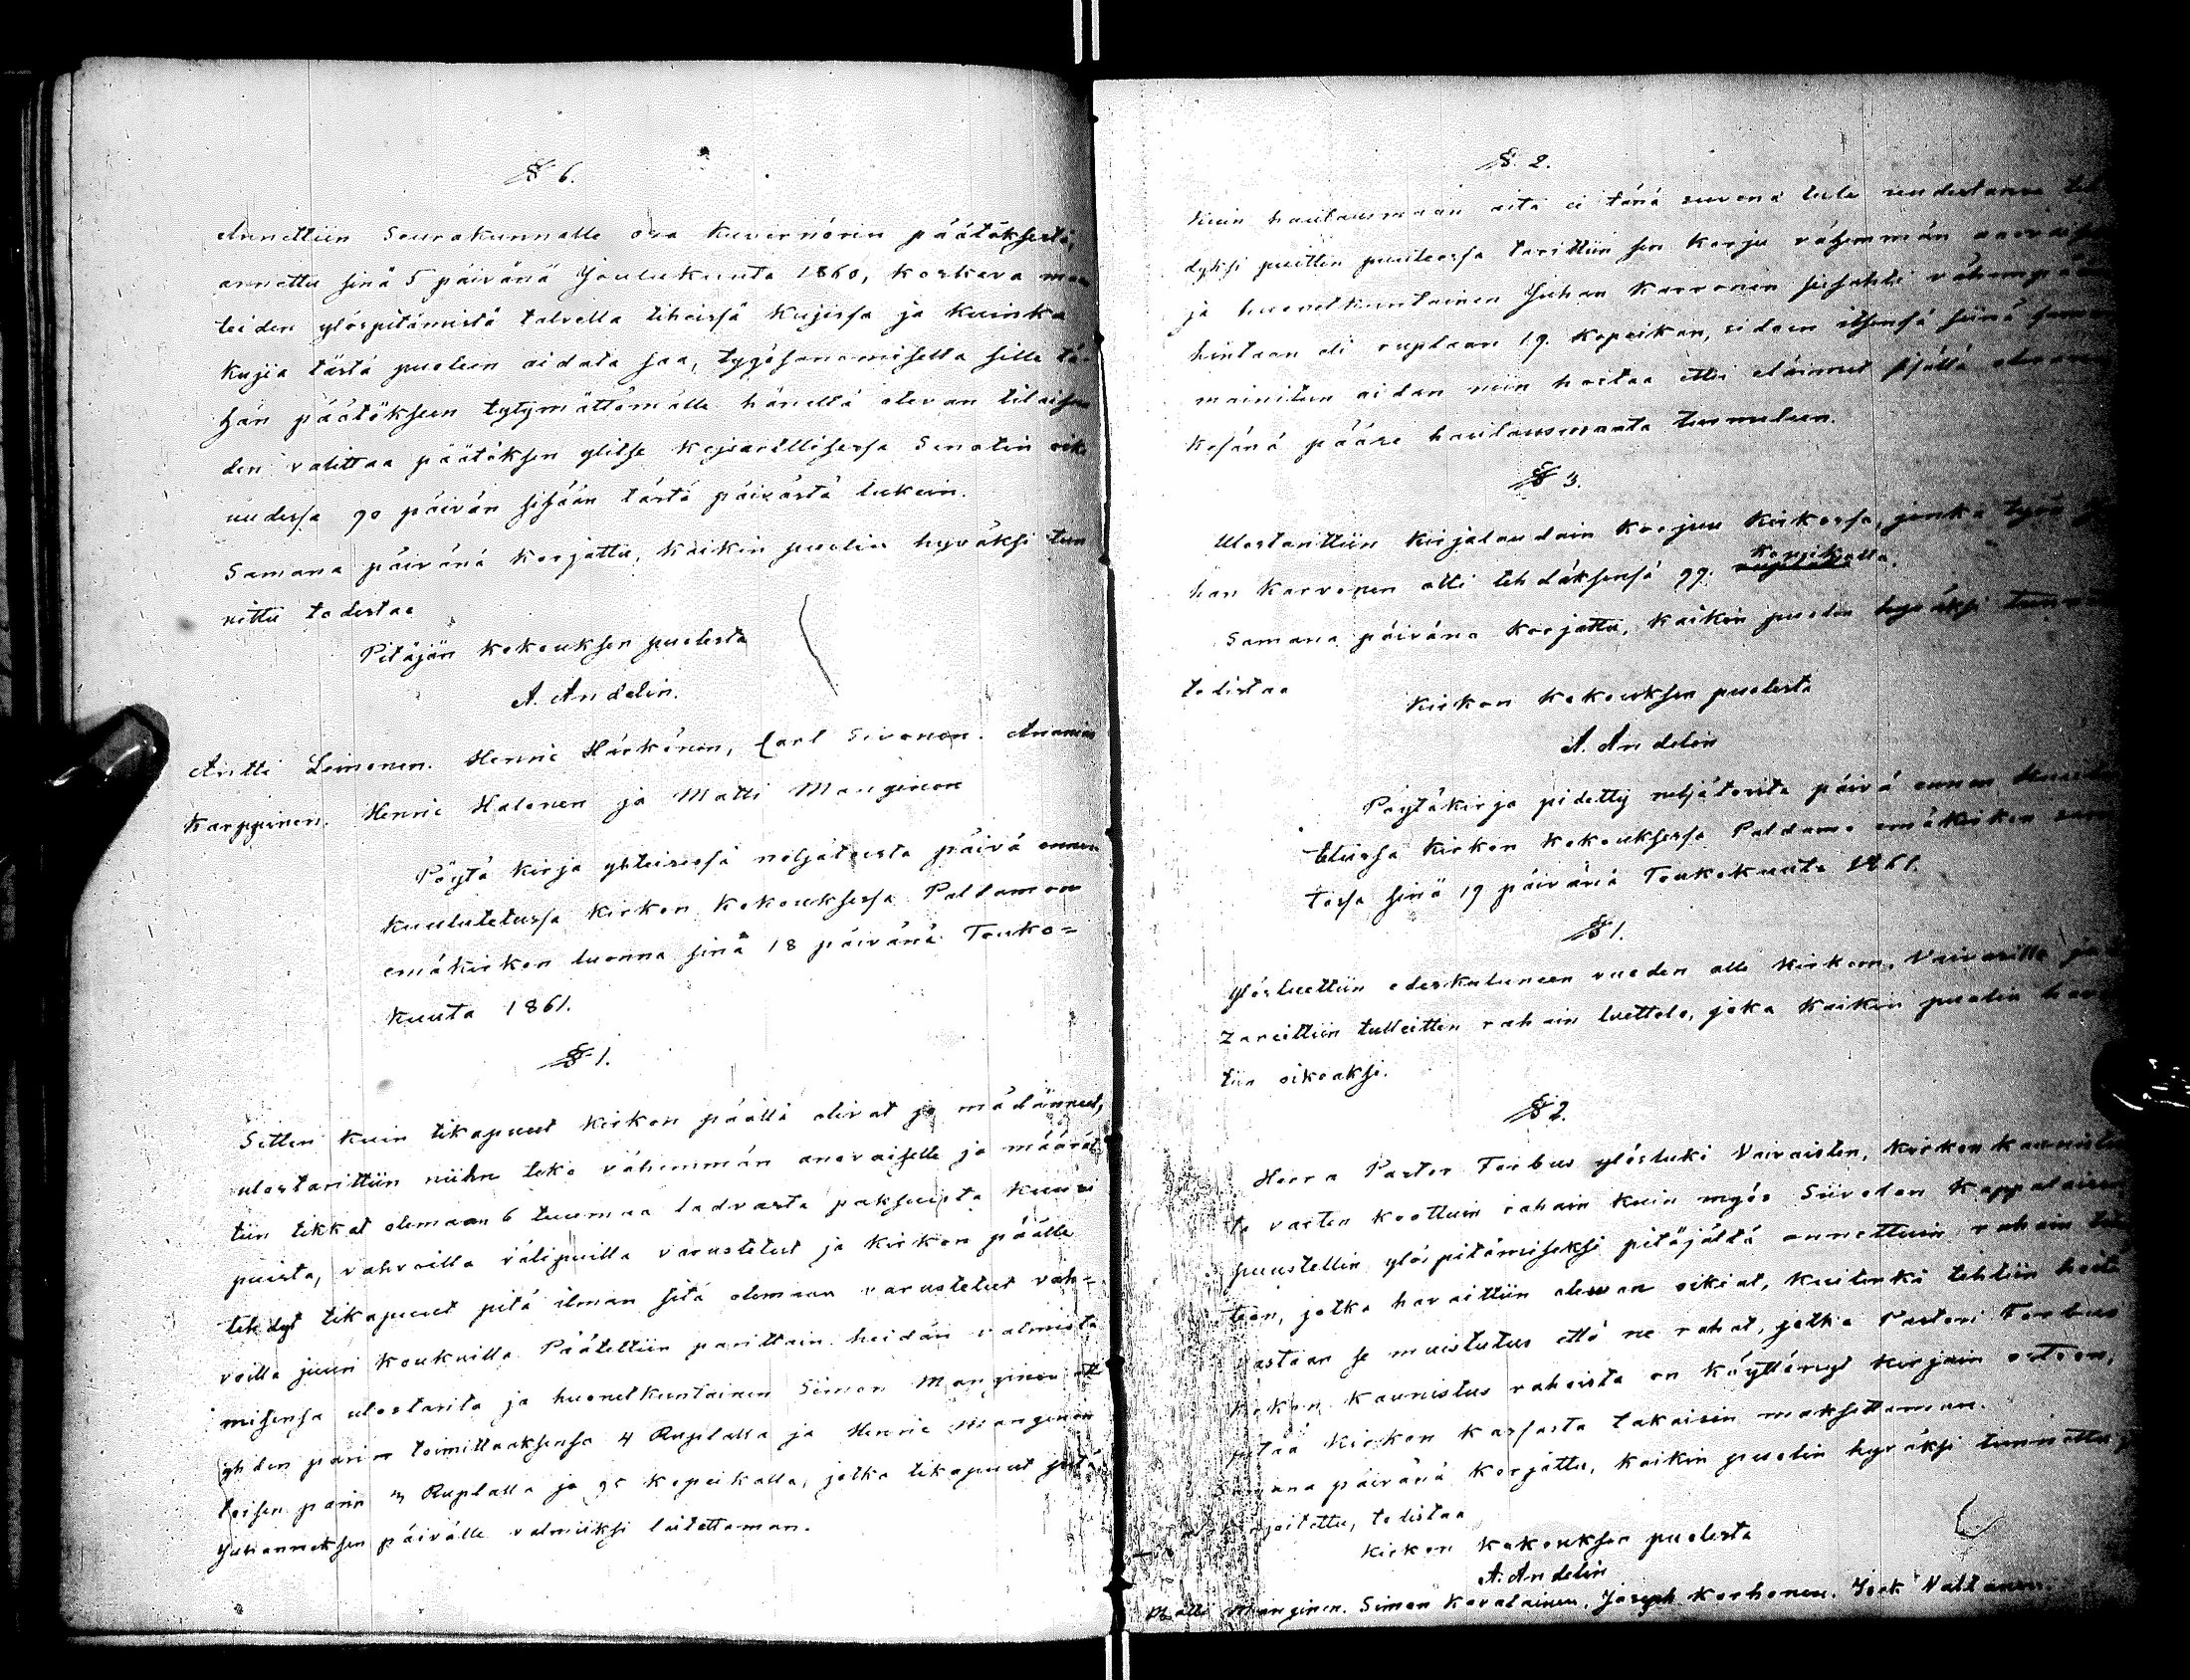 § 6.
Annettiin Seurakunnalle osa Kuvernörin päätöksestä,
annettu sinä 5 päivänä Joulukuuta 1860, koskeva maan
teiden ylöspitämistä talvella liheissä kujissa ja kuinka
kujia tästä puolein aidata saa, tygösanomisella sille tä-
hän päätökseen tytymättömälle häneltä olevan tilaisuu
den valittaa päätöksen ylitse Kejsarillisessa Senatin oike
uudessa 90 päivän sisään tästä päivästä lukein.
Samana päivänä korjattu, kaikin puolin hyväksi tun
nittu todistaa
Pitäjän kokouksen puolesta
A. Andelin.
Antti Leinonen. Henric Härkönen, Carl Sivonen. Ananias
Karppinen. Henric Halonen ja Matti Manginen
Pöytä kirja yhteisessä neljätoista päivä ennen
kuulutetussa kirkon kokouksessa Paldamon
emäkirkon luonna sinä 18 päivänä Touko=
kuuta 1861.
§ 1.
Sitten kuin tikapuut kirkon päällä olivat jo mädänneet,
ulostarittiin niiden teko vähemmän anovaiselle ja määrät
tiin tikkat olemaan 6 tuumaa ladvasta paksuista kuusi
puista, vahvoilla välipuilla varustetut ja kirkon päälle
tehdyt tikapuut pitä ilman sitä olemaan varustetut vah=
voilla juuri koukuilla. Päätettiin parittain heidän valmista
misensa ulostarita ja huonetkuntainen Simon Manginen otti
yhden parin toimittaaksensa 4 Ruplalla ja Henric Manginen
toisen parin 3 Ruplalla ja 95 kopeikalla, jotka tikapuut pitä
Juhanneksen päivälle valmiiksi laitettaman.
§. 2.
Kuin hautausmaan aita ei tänä suvena tule uudestansa
dyksi puitten puuteessa tarittiin sen korju vähemmän
ja huonetkuntainen Juhan Karvonen
hintaan oli ruplaan 19. kopeikan, sidoen itsensä siinä
mainitun aidan niin hoitaa ettei eläimet
kesänä pääse hautausmaata turmeleen.
§ 3.
Ulostarittiin kirjalaudain korjuu kirkossa, jonka työn
han Karvonen otti tehdäksensä 99. kopeikalla.
Samana päivänä korjattu, kaikin puolin hyväksi
todistaa
Kirkon kokouksen puolesta
A. Andelin
Pöytäkirja pidetty neljätoista päivä ennen
kirkon kokouksessa Paldamo emäkirkon
tossa sinä 19 päivänä Toukokuuta 1861.
§ 1.
Ylösluettiin edeskuluneen vuoden alle kirkoon, Vaivasille
Zareittiin tulleitten rahain luettelo, joka kaikin puolin
tiin oikeaksi.
§ 2.
Herra Pastor Forbus ylösluki Vaivaisten, kirkon
ta varten koottuin rahain kuin myös Siivodon Kappalaisen
puustellin ylöspitämiseksi pitäjältä annettuin rahain
teon, jotka havaittiin olewan oikiat, kuitenki tehtiin
vastaan se muistutus että ne rahat, jotka Pastori Forbus
kirkon kaunistus rahoista on käyttänyt kirjain ostoon,
pitää kirkon kassasta takaisin maksettaman.
Samana päivänä korjattu, kaikin puolin hyväksi tunnittu
todistaa
Kirkon kokouksen puolesta
A. Andelin
Matti Manginen. Simon Kovalainen, Joseph Korhonen.